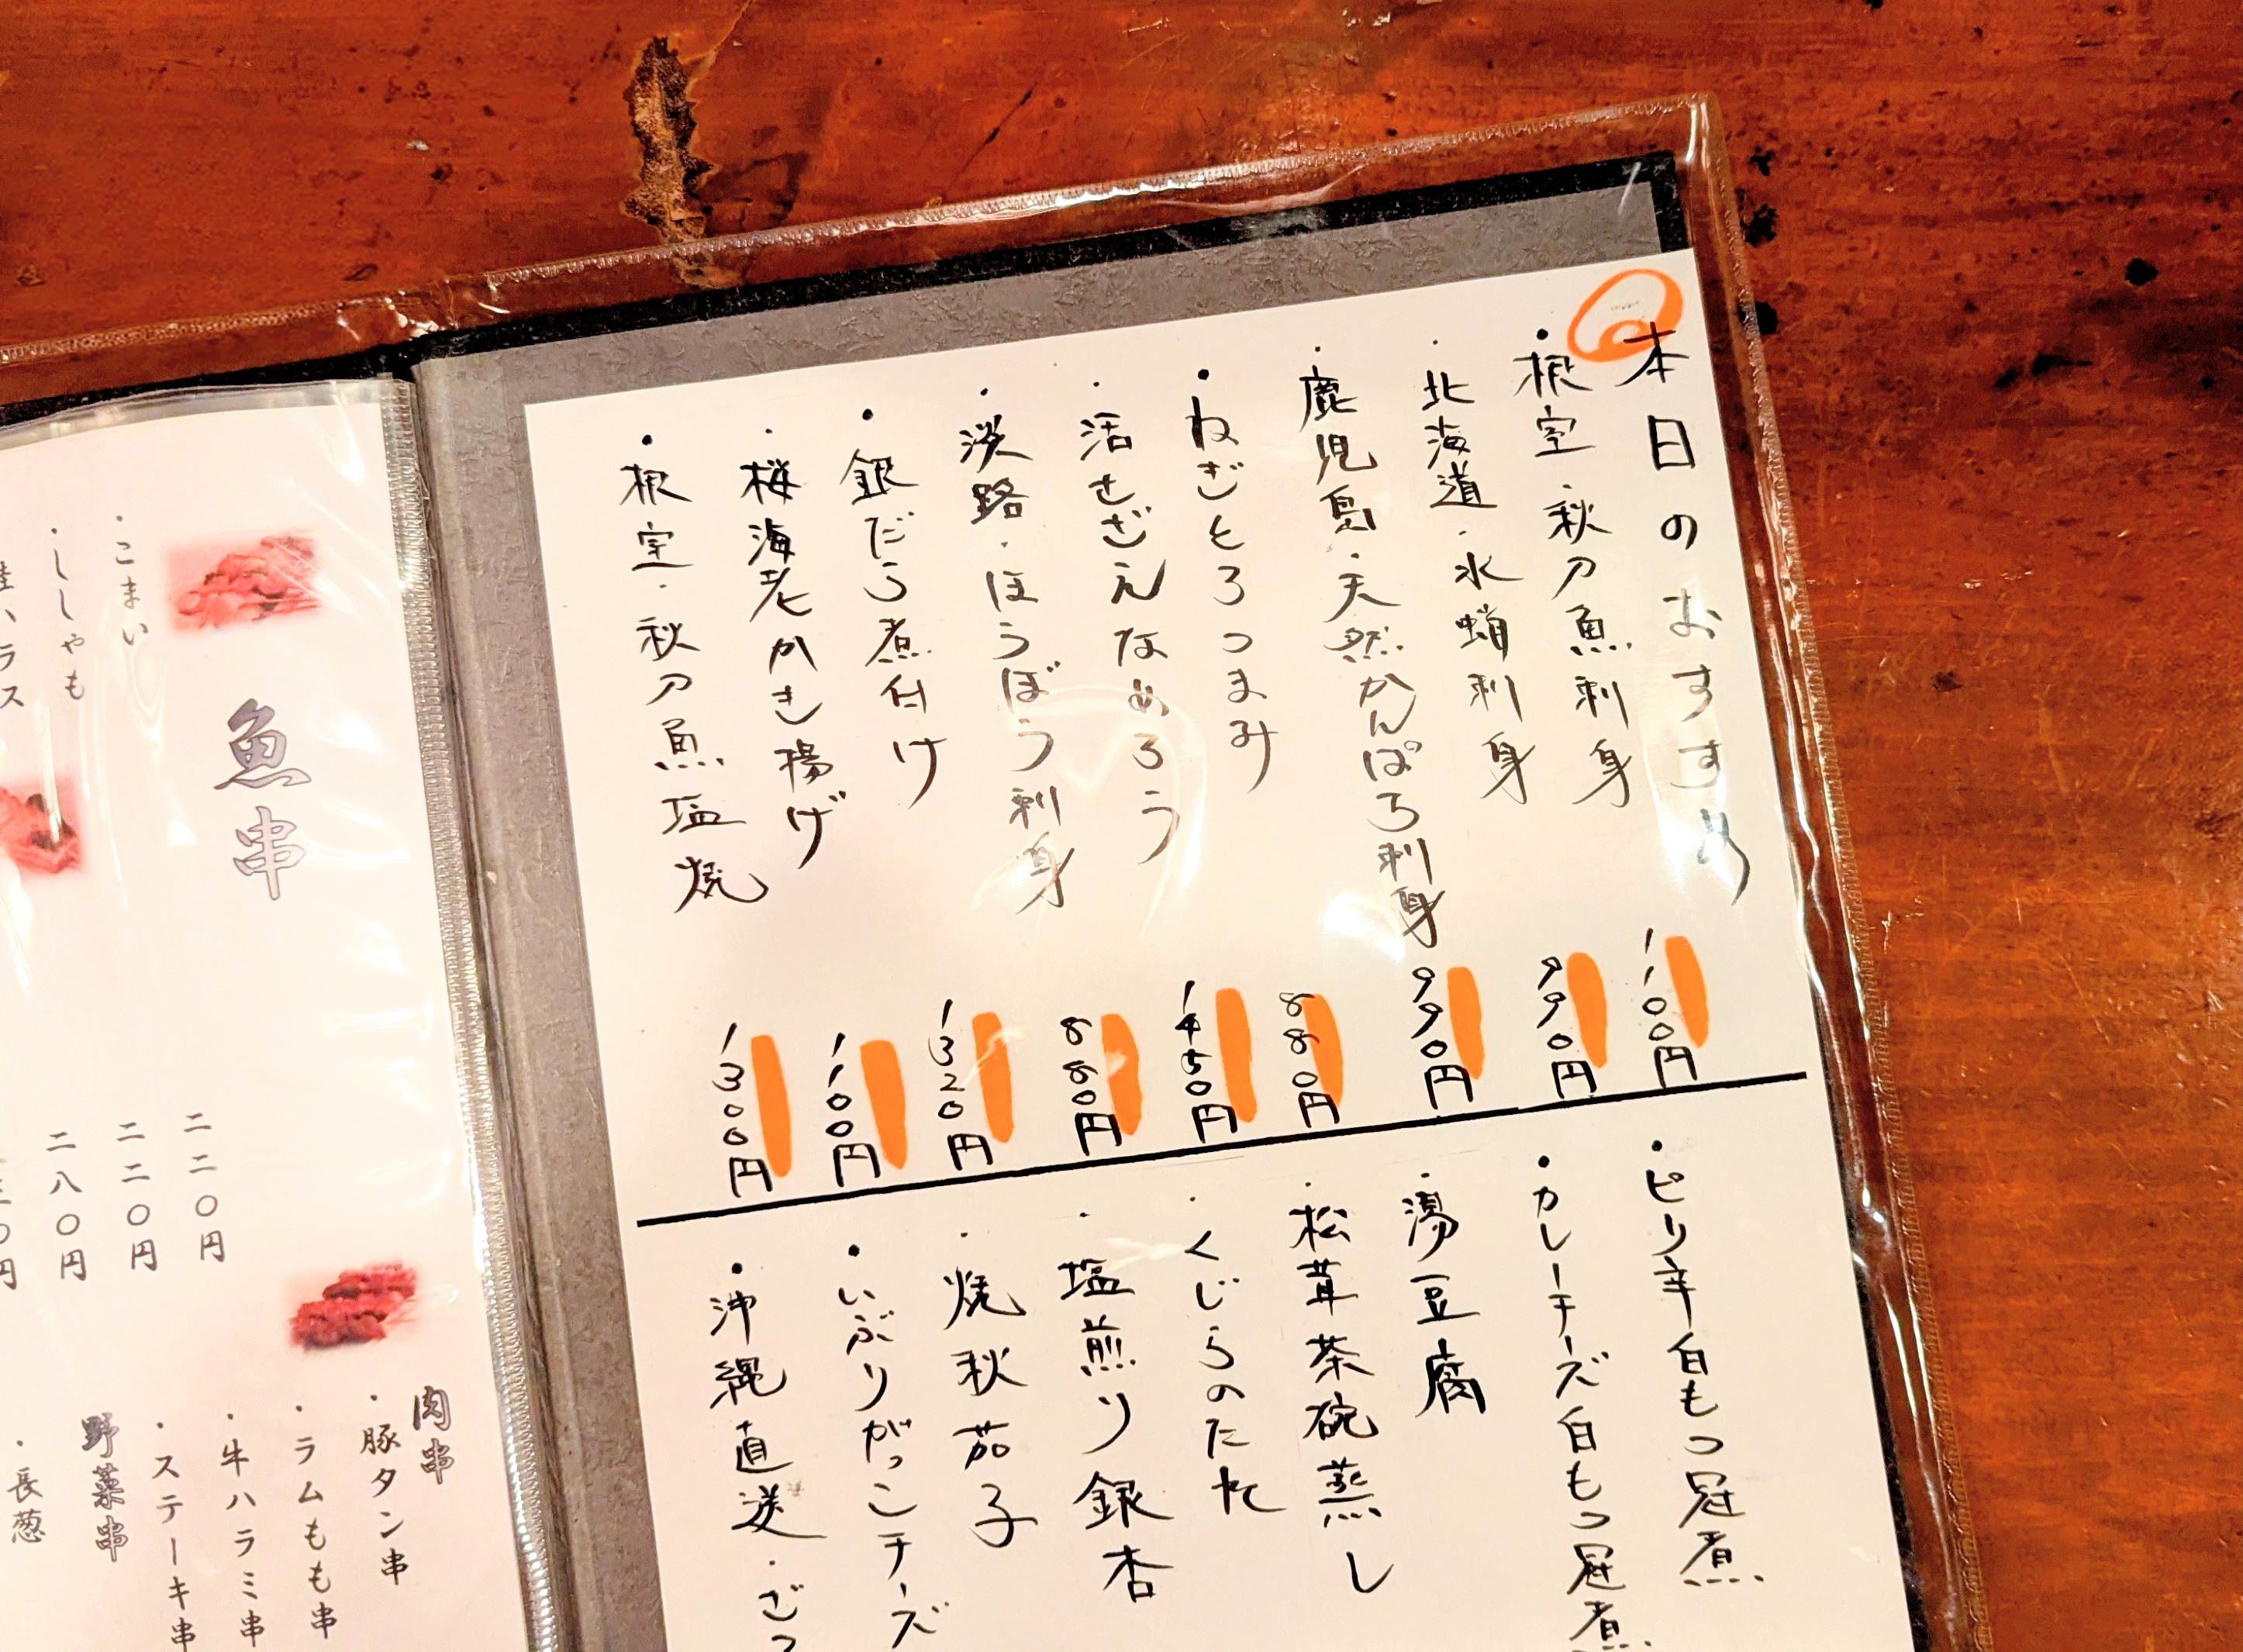 本日のおすすめ
・根室・秋刀魚刺身 1100円
・北海道・水蛸刺身 990円
・鹿児島・天然かんぱち刺身 990円
・ねぎとろつまみ 880円
・活さざえなめろう 1450円
・淡路・ほうぼう刺身 880円
・銀だら煮付け 1320円
・桜海老かき揚げ 1100円
・根室・秋刀魚塩焼 1300円
・ピリ辛白もつ冠煮
・カレーチーズ白もつ冠煮
・湯豆腐
・松茸茶碗蒸し
・くじらのたれ
・塩煎り銀杏
・焼秋茄子
・いぶりがっこチーズ
・沖縄直送・
魚串
・こまい
・ししゃも
ハラス
二二〇円
二二〇円
二八〇円
〇円
肉串
・豚タン串
・ラムもも串
・牛ハラミ串
・ステーキ串
野菜串
・長葱